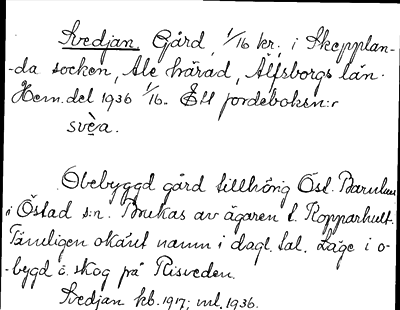 Svedjan. Gård, 1/16 kr., i Skepplan-
-da socken, Ale härad, Älfsborgs län.
Hem.del 1936 1/16. Ett jordeboksn:r
svèa.
Obebyggd gård tillhörig Öst. Barnhus
i Östad s:n. Brukas av ägaren t. Ropparhult.
Tämligen okänt namn i dagl. tal. Läge i o-
-bygd o. skog på Risveden.
Svedjan kb. 1917; ml. 1936.